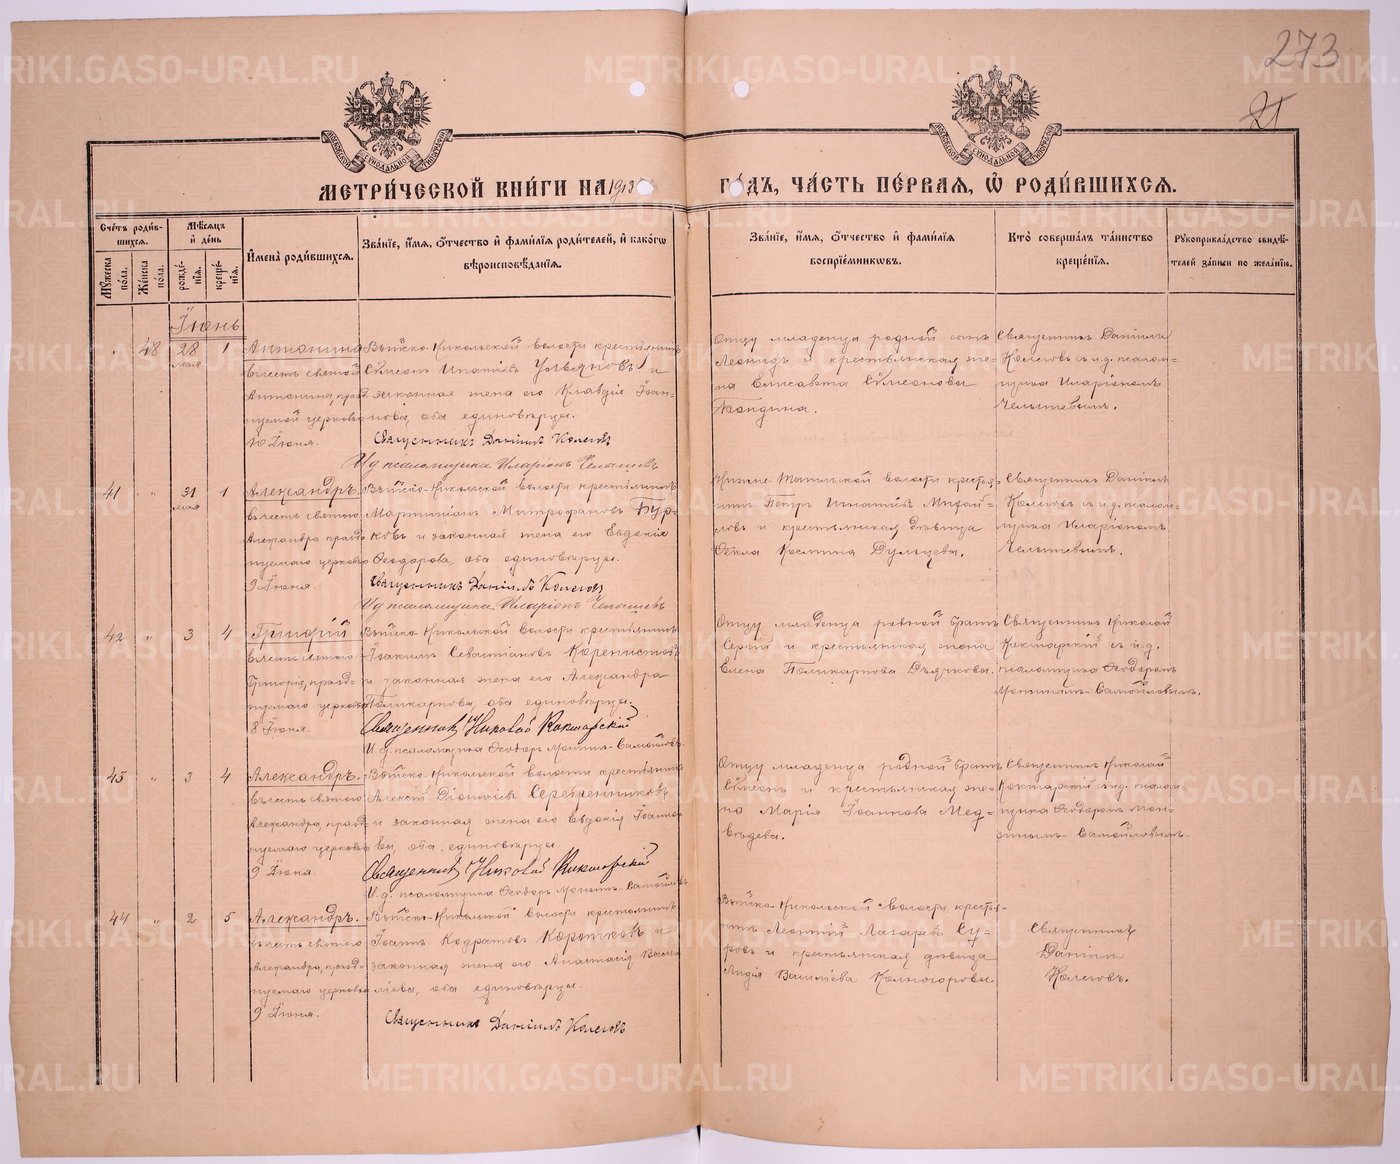 273
21
МЕТРИ́ЧЕСКОЙ КНИ́ГИ НА 1913
ГО́ДЪ, ЧА́СТЬ ПЕ́РВАЯ, Ѡ҆ РОДИ́ВШИХСЯ.
Сче́тъ роди́вшихся.
Му́жеска по́ла.
Же́нска по́ла.
Мѣ́сяцъ и҆ де́нь
рожде́нїя.
креще́нїя.
И҆мена̀ роди́вшихся.
Зва́нїе, и҆́мя, ѻ҆́тчество и҆ фами́лїя роди́телей, и҆ како́гѡ
вѣроисповѣ́данїя.
Зва́нїе, и҆́мя, ѻ҆́тчество и҆ фами́лїя
воспрїе́мникѡвъ.
Кто̀ соверша́лъ та́инство
креще́нїя.
Рꙋкоприкла́дство свидѣ́телей за́писи по жела́нїю.
Іюнь
48 28 мая 1
Антонина
въ честь святой
Антонины, празднуемой церковью
10 Іюня.
Выйско-Никольской волости крестьянинъ
Сѵмеонъ Ипатіевъ Ульяновъ и
законная жена его Клавдія Іоаннова, оба единовѣрцы.
Священникъ Даніилъ Колеговъ
И д псаломщика Иларіонъ Челышевъ
Отцу младенца родной сынъ
Леонидъ и крестьянская жена Елисавета Сѵмеонова
Бондина.
Священникъ Даніилъ
Колеговъ съ и.д. псаломщика Иларіономъ
Челышевымъ.
41 " 31 мая 1
Александръ.
въ честь святого
Александра, празднуемаго церковью
9 Іюня
Выйско-Никольской волости крестьянинъ
Мартиніанъ Митрофановъ Бурковъ и законная жена его Евдокія
Ѳеодорова, оба единовѣрцы.
Священникъ Даніилъ Колеговъ
И д псаломщика Иларіонъ Челышевъ
Нижне-Тагильской волости крестьянинъ Петръ Ипатіевъ Михайловъ и крестьянская дѣвица
Ѳекла Космина Дульцева.
Священникъ Даніилъ
Колеговъ съ и.д. псаломщика Иларіономъ
Челышевымъ.
42 " 3 4
Григорій
въ честь святого
Григорія, празднуемаго церковью
8 Іюня.
Выйско-Никольской волости крестьянинъ
Іоакимъ Севастіановъ Коренистовъ
и законная жена его Александра
Поликарпова, оба единовѣрцы.
Священникъ Николай Кокшарскій
И. д. псаломщика Ѳеодоръ Монинъ-Самойловъ.
Отцу младенца родной братъ
Сергій и крестьянская жена
Елена Поликарпова Дьячкова.
Священникъ Николай
Кокшарскій съ и.д.
псаломщика Ѳеодоромъ
Мониномъ-Самойловымъ.
43 " 3 4
Александръ.
въ честь святого
Александра, празднуемаго церковью
9 Іюня.
Выйско-Никольской волости крестьянинъ
Алексій Діонисіевъ Серебренниковъ
и законная жена его Евдокія Іоаннова, оба единовѣрцы.
Священникъ Николай Кокшарскій
И. д. псаломщика Ѳеодоръ Монинъ-Самойловъ
Отцу младенца родной братъ
и крестьянская жена Марія Іоаннова Медвѣдева.
Священникъ Николай
Кокшарскій съ и.д. псаломщика Ѳеодоромъ Мониномъ-Самойловымъ.
44 " 2 5
Александръ.
въ честь святого
Александра, празднуемаго церковью
9 Іюня.
Выйско-Никольской волости крестьянинъ
Іоаннъ Кодратовъ Коротковъ и
законная жена его Анастасія Василіева, оба единовѣрцы.
Священникъ Даніилъ Колеговъ
Выйско-Никольской волости, крестьянинъ Леонтій Лазаревъ Суровъ и крестьянская дѣвица
Лидія Василіева Колногорова.
Священникъ
Даніилъ
Колеговъ.
METRIKI.GASO-URAL.RU